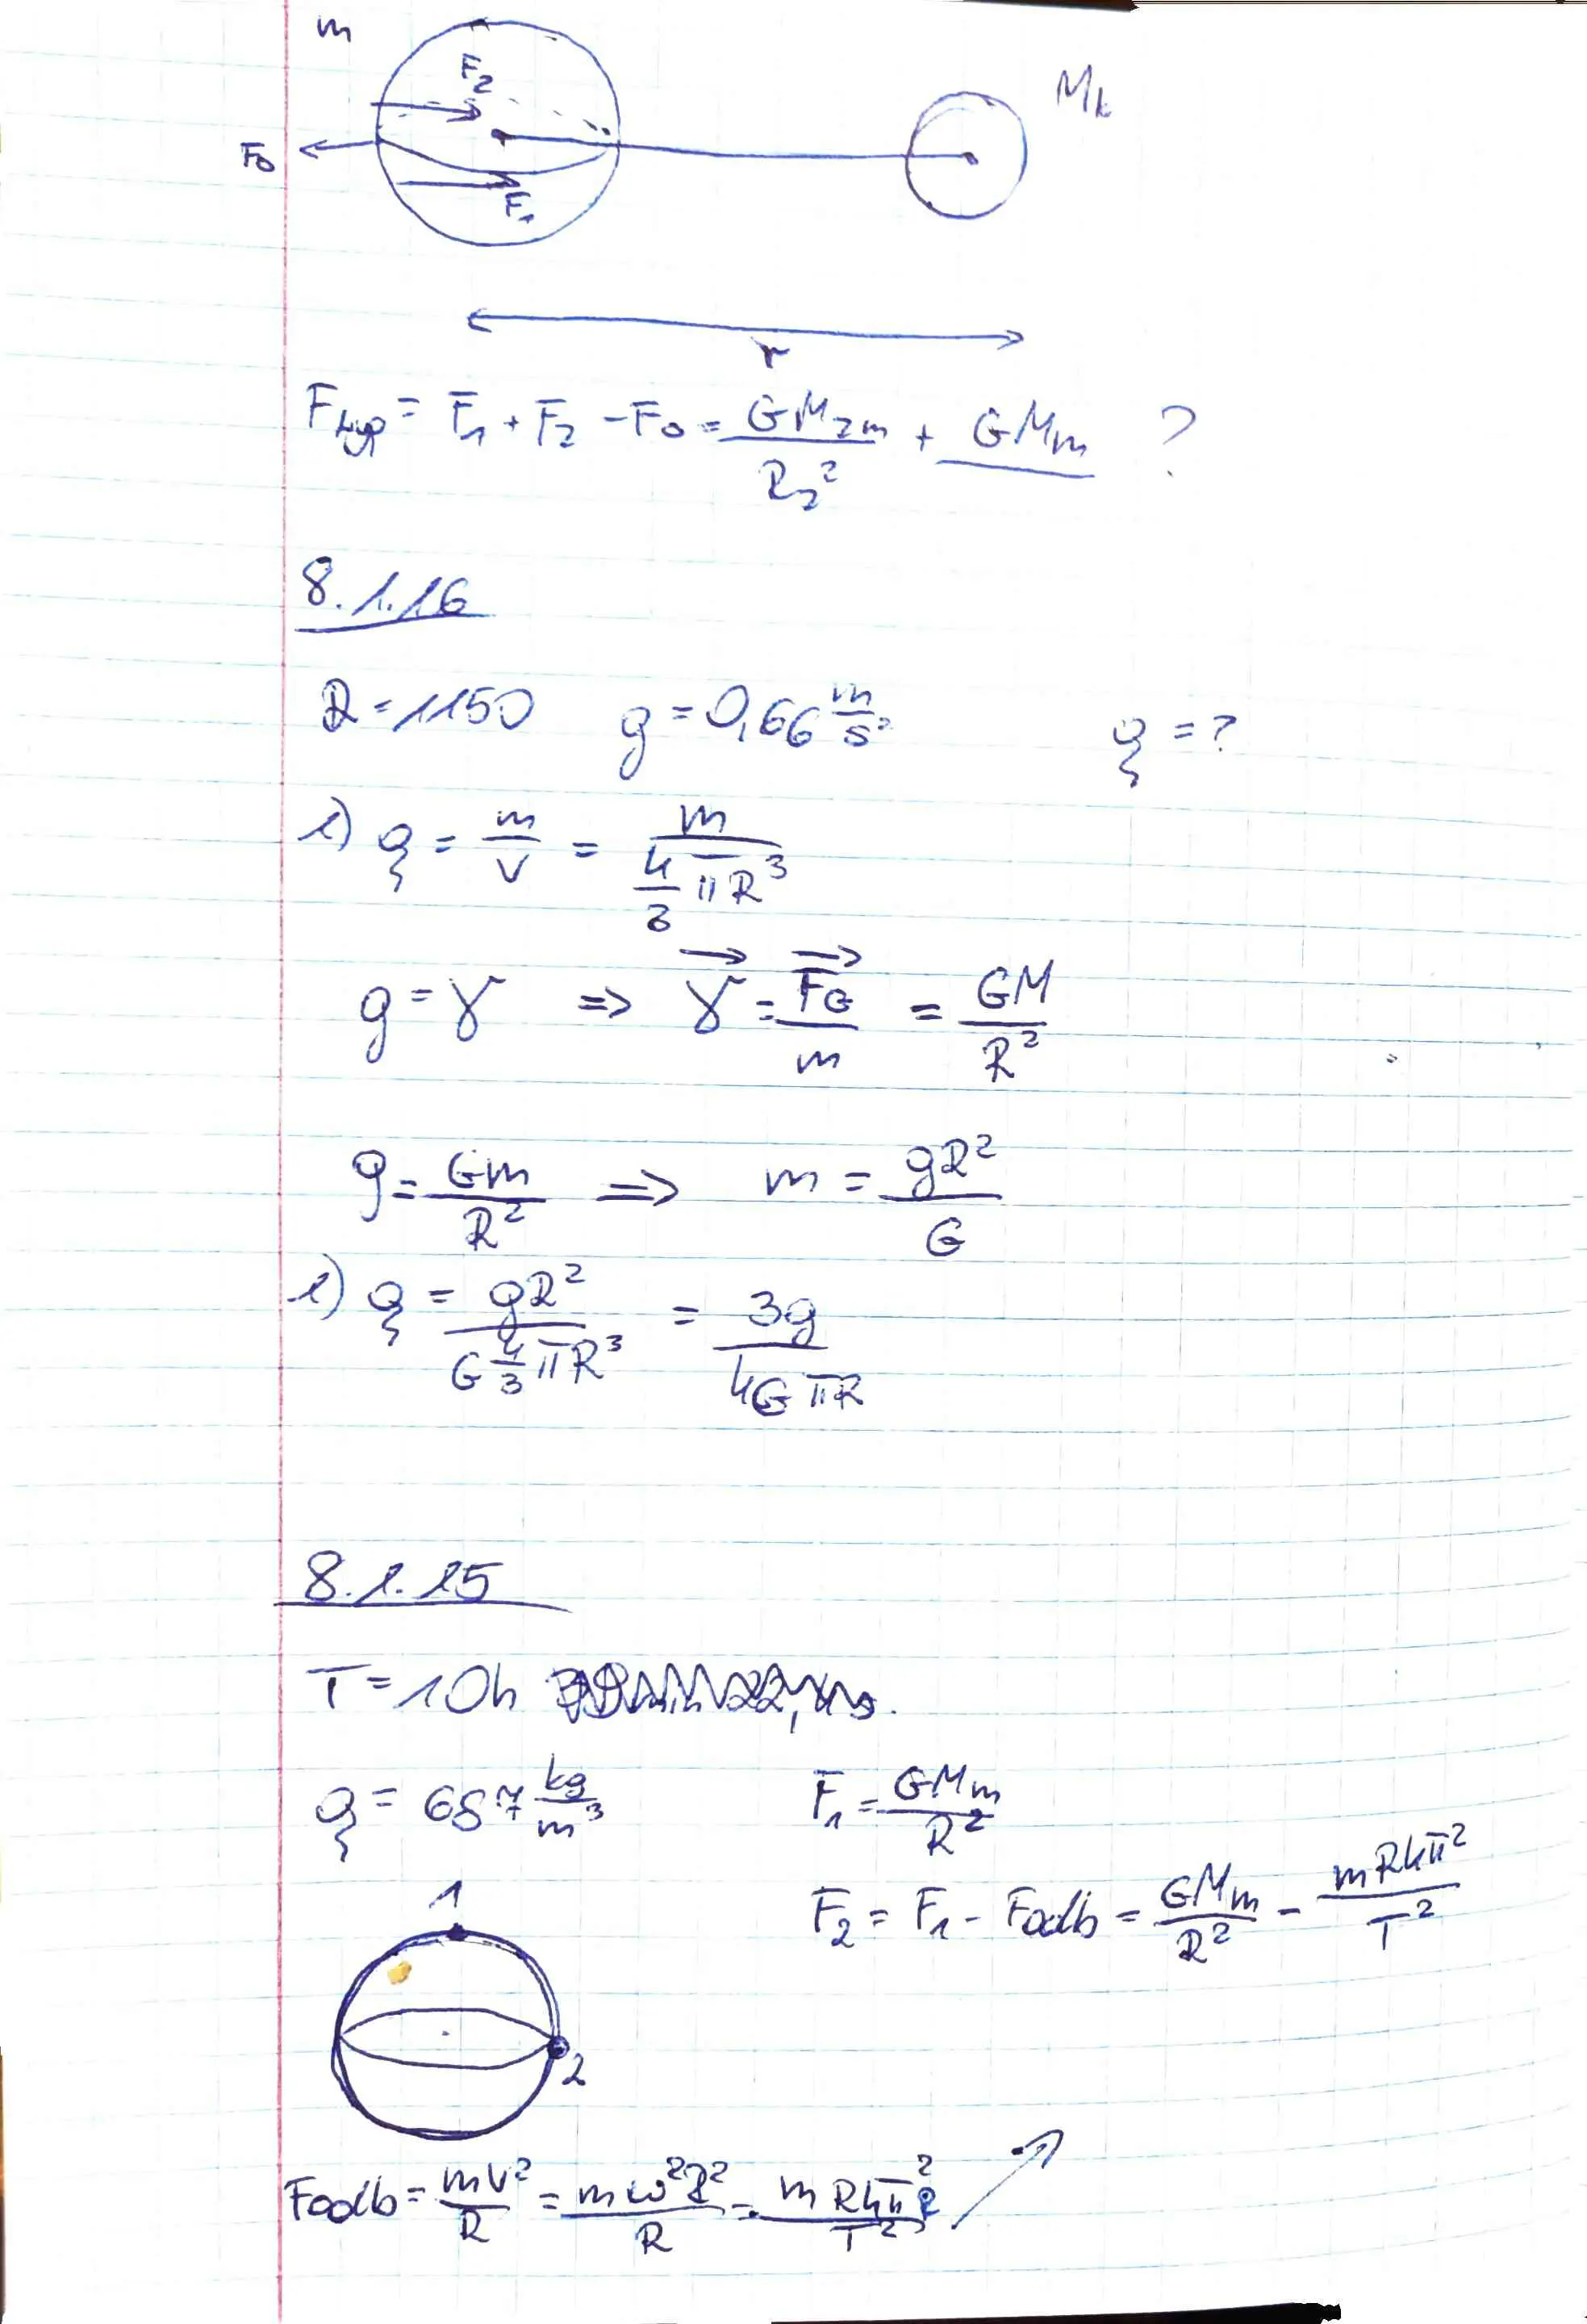 m
F₂
M_k
F₀
F₁
r
F_wyp = F₁ + F₂ - F₀ = GM_Zm / R_Z² + GMm ?
8.1.16
R = 1150 g = 0,66 m/s² ρ = ?
1) ρ = m/V = m / (4/3 πR³)
g = γ => γ⃗ = F⃗_G / m = GM / R²
g = Gm / R² => m = gR² / G
1) ρ = gR² / (G 4/3 πR³) = 3g / (4GπR)
8.1.15
T = 10h
ρ = 687 kg/m³ F₁ = GMm / R²
1
F₂ = F₁ - Fodb = GMm / R² - mR4π² / T²
2
Fodb = mv² / R = mω²R² / R = mR4π² / T²